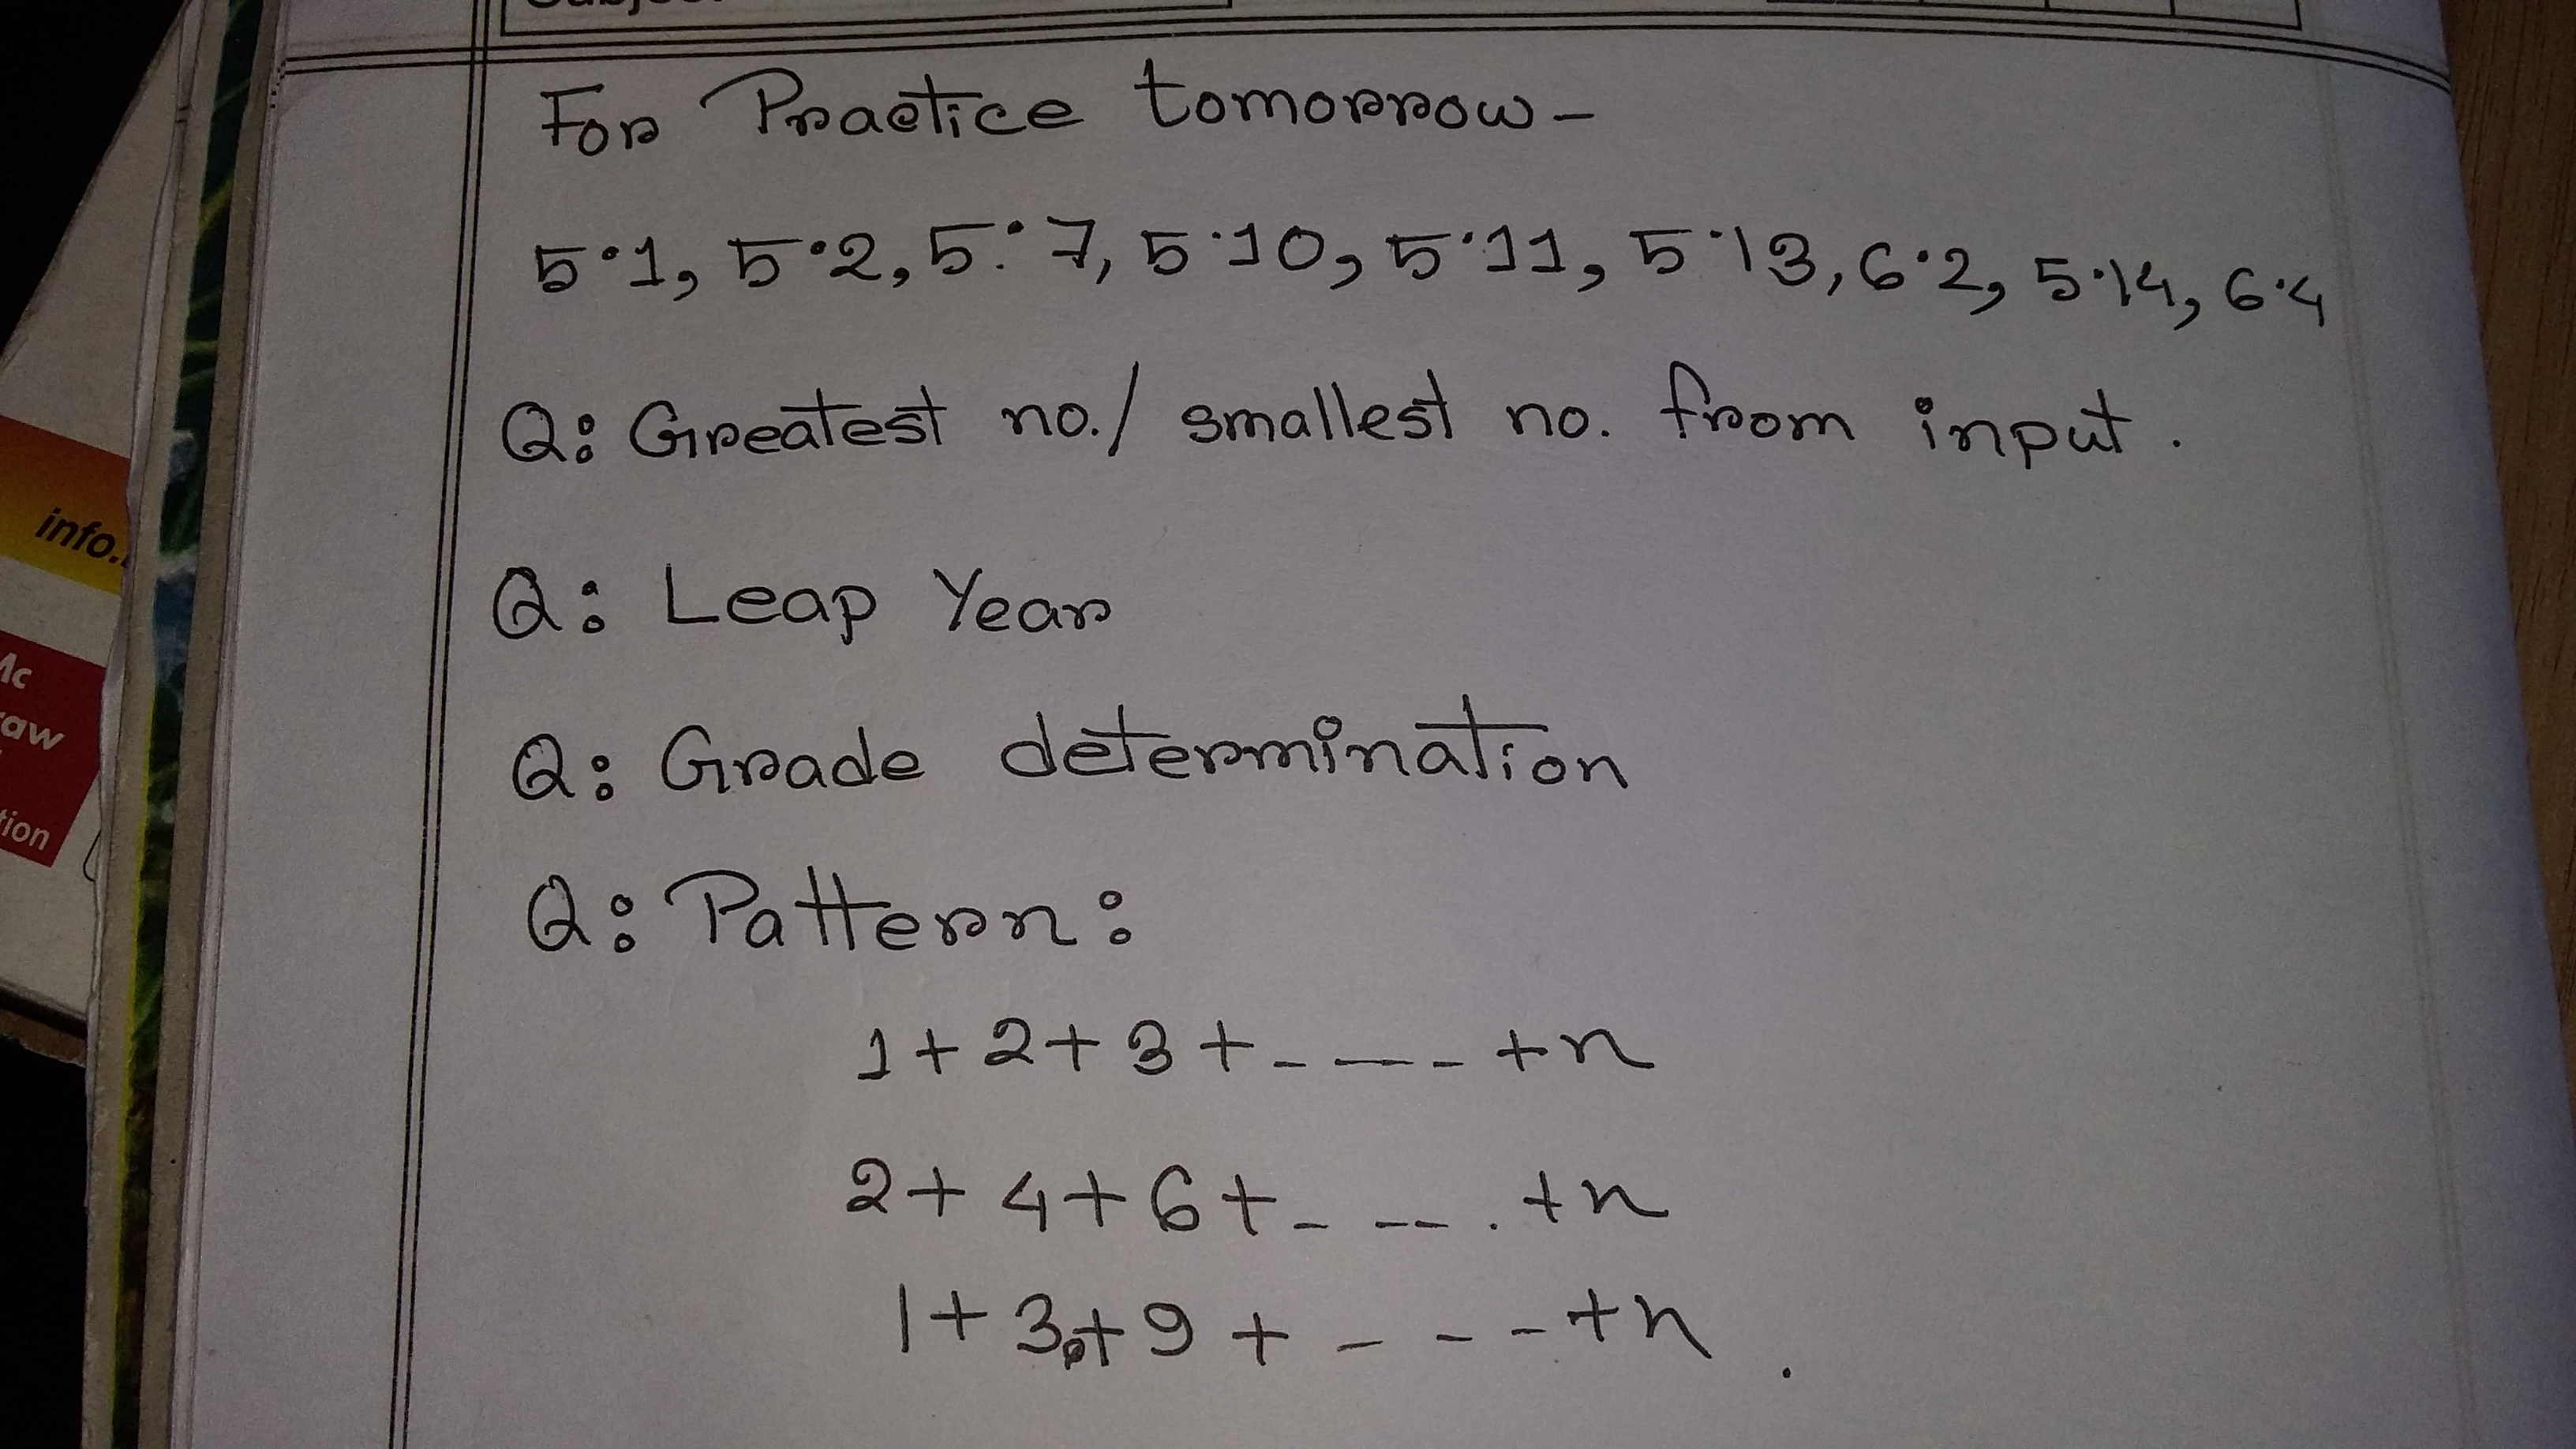 For Practice tomorrow-
5.1, 5.2, 5.7, 5.10, 5.11, 5.13, 6.2, 5.14, 6.4
Q: Greatest no./ smallest no. from input.
Q: Leap Year
Q: Grade determination
Q: Pattern:
1+2+3+-----+n
2+4+6+----.+n
1+3+9+---+n.
info.
Mc
raw
tion